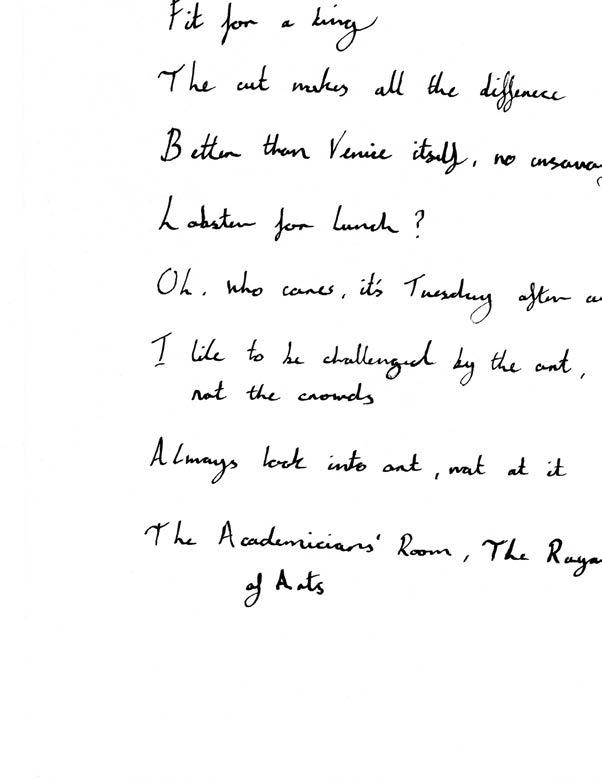 Fit for a king
The cut makes all the difference
Better than Venice itself, no
Lobster for lunch?
Oh, who cares, it's Tuesday after
I like to be challenged by the art,
not the crowds
Always look into art, not at it
The Academicians' Room, The
of Arts